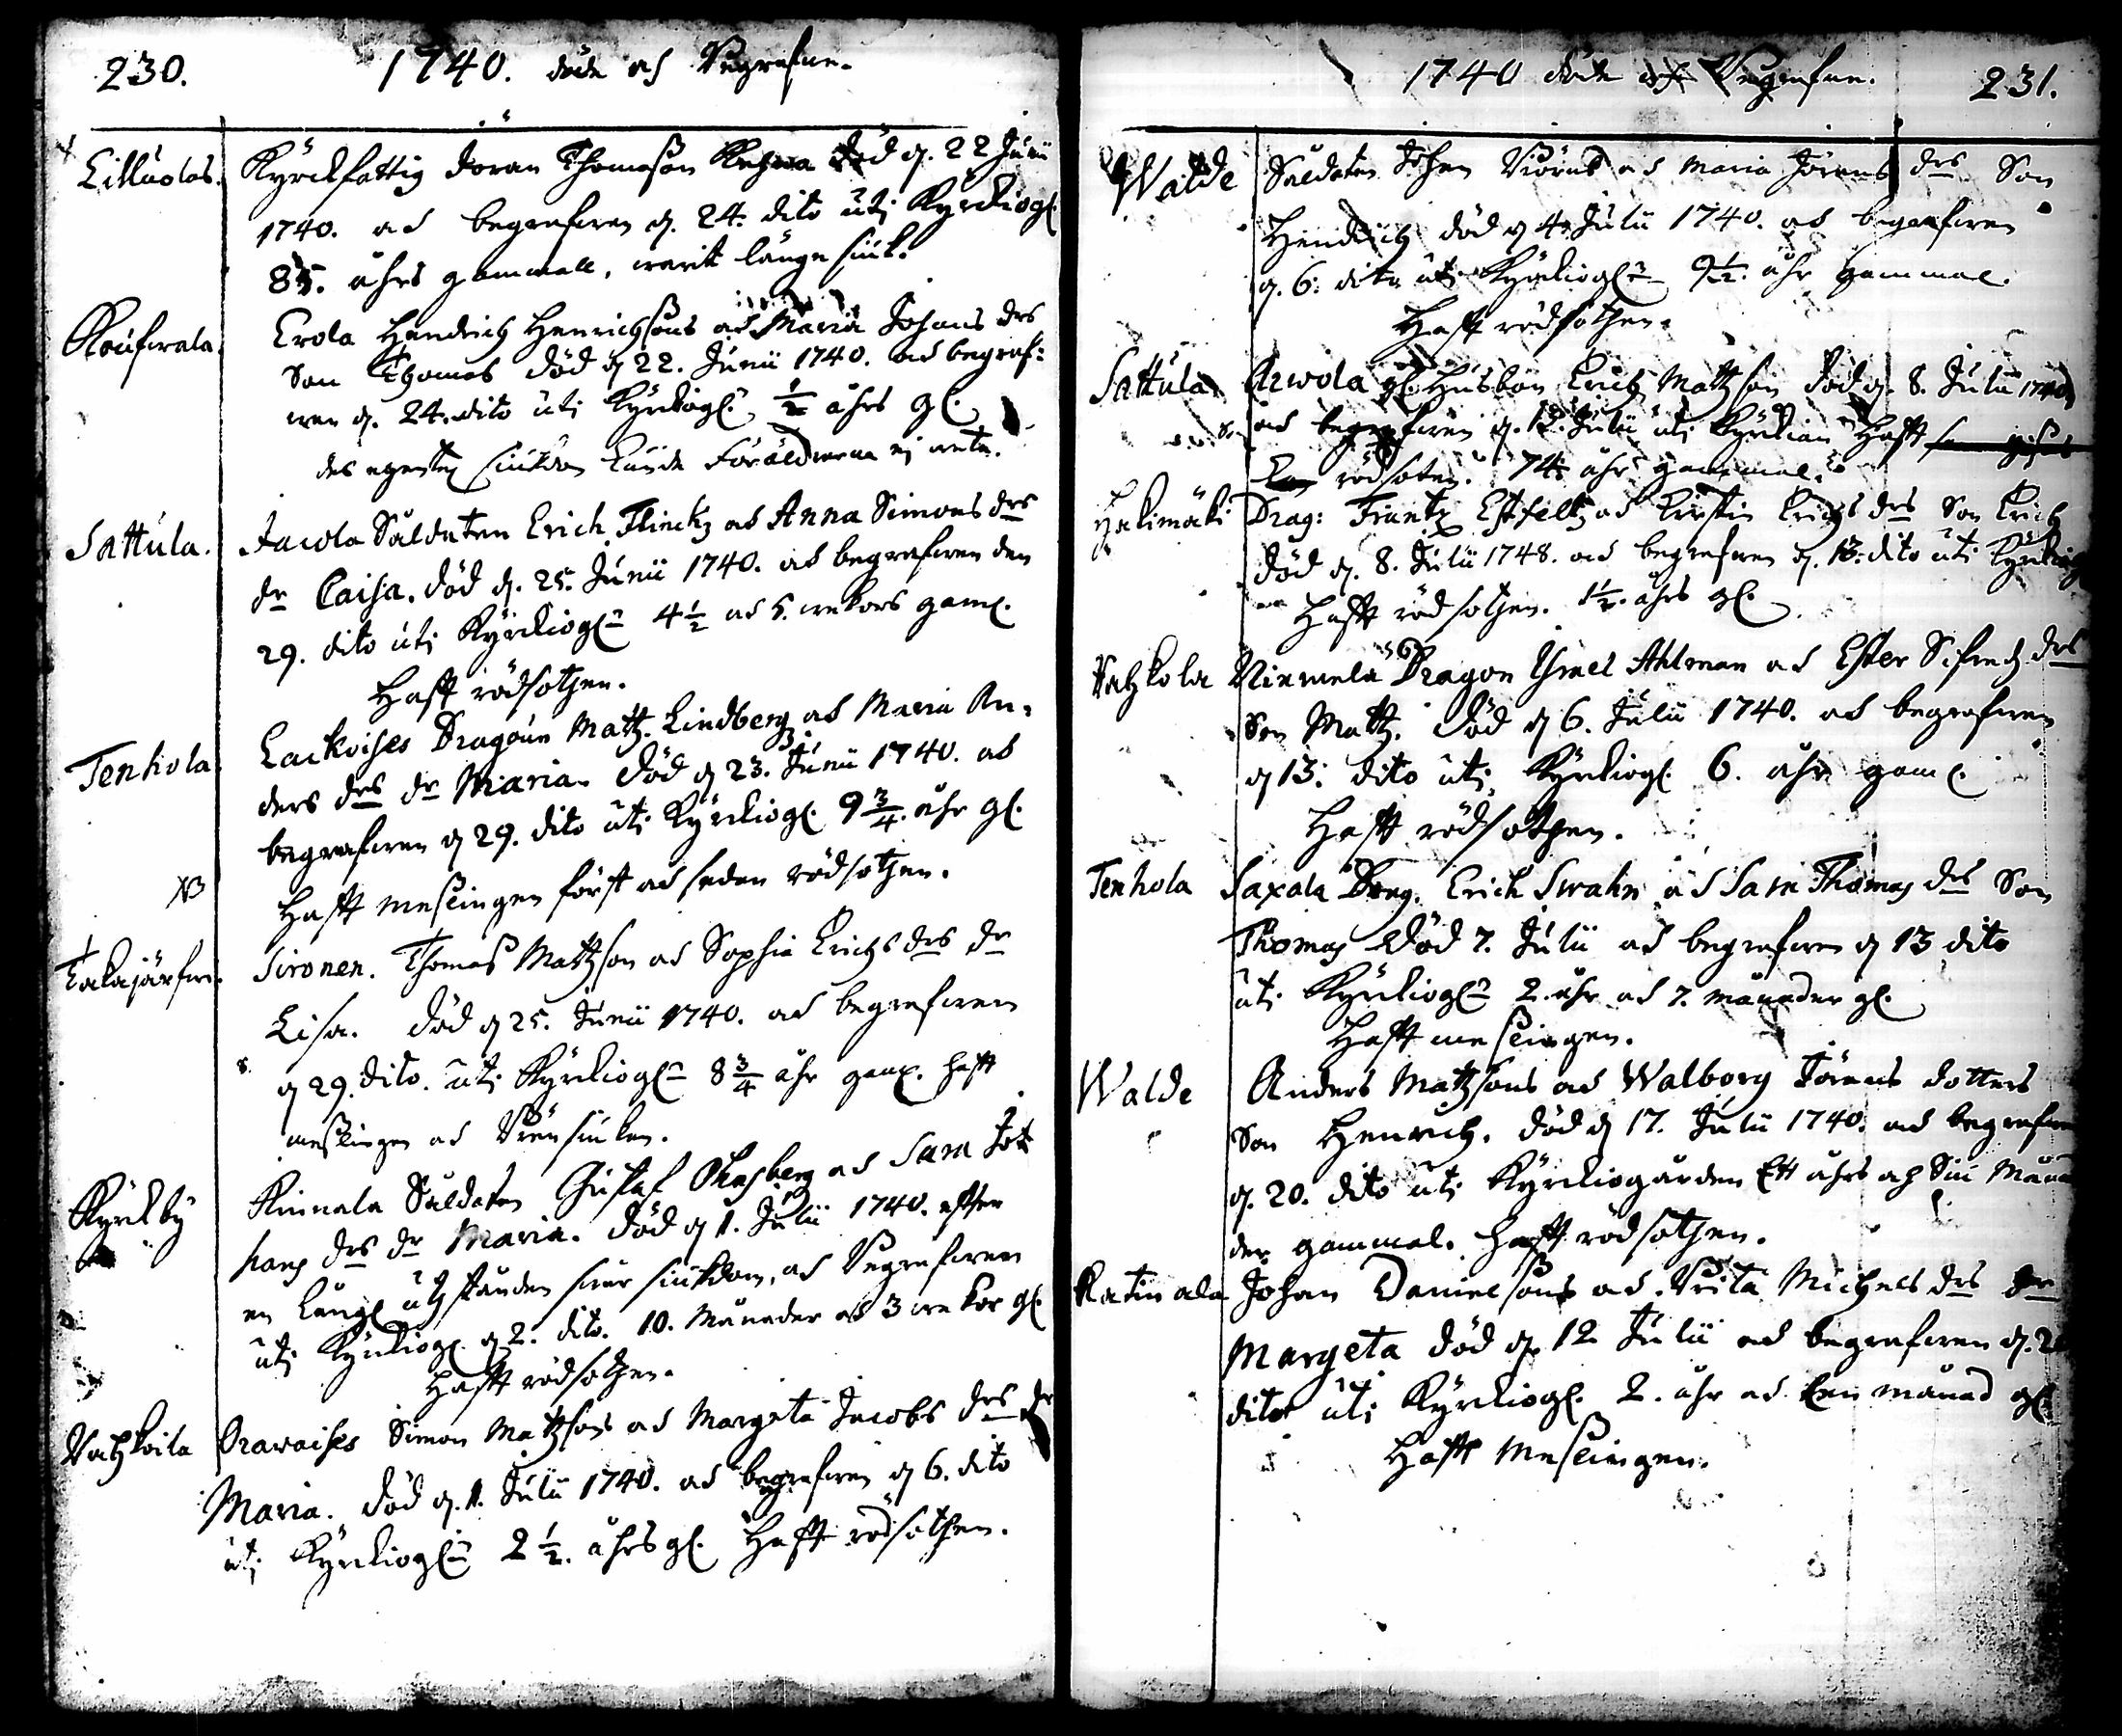 230. 1740. döde och Begrafne.
Lilluolos. Kyrckfattig Joran Thomason död d. 22 Junii
1740. och begrafwen d. 24. dito uti Kyrckiog:
85. åhrs gammall, warit länge siuk.
Kouferala. Erola Hendrich Henrichsons och Maria Johans drs
Son Thomas död d. 22. Junii 1740. och begraf:
wen d. 24. dito uti Kyrckiog: ½ åhrs gl.
des egentl. siukdom kunde Föräldrarna ej weta.
Sattula. Jacola Saldaten Erich Flinck och Anna Simons drs
dr Caisa. död d. 25. Junii 1740. och begrafwen den
29. dito uti Kyrckiogl: 4½ och 5. wekors gaml.
Hafft rödsothen.
Tenhola Lackoises Dragoun Matz. Lindberg och Maria An-
ders drs dr Maria. död d. 23. Junii 1740. och
begrafwen d. 29. dito uti Kyrckiogl. 9¾. åhr gl.
NB Hafft meslingen först och sedan rödsothen.
Takajärfwi. Sironen. Thomas Mattson och Sophia Erichs drs dr
Lisa. död d. 25. Junii 1740. och begrafwen
d. 29. dito. uti Kyrckiogl: 8¾ åhr gaml. hafft
meslingen och siukan.
Kyrckby Kinnala Saldaten Gustaf och Sara Jo-
hans drs dr Maria. död d. 1. Julii 1740. efter
en långl. utstånden swår siukdom, och Begrafwen
uti Kyrckiog. d. 2. dito. 10. Månader och 3 wekor gl.
Hafft rödsothen.
Vatzkoila Orawaises Simon Matzsons och Margeta Jacobs drs dr
Maria. död d. 1. Julii 1740. och begrafwen d. 6. dito
uti Kyrckiogl: 2½. åhrs gl. Hafft rödsothen.
1740 döde och Begrafne. 231.
Walde Saldaten Johan och Maria Jörans drs Son
Hendrich död d. 4. Julii 1740. och begrafwen
d. 6. dito uti Kyrckiogl: 9½. åhr gammal.
Hafft rödsothen.
Sattula Arwola gl. Husbon Erich Mattson död d. 8. Julii 1740
och begrafwen d. 12. Julii uti Kyrckian Hafft
rödsoten. 74. åhr gammal.
Hakimäki Drag: Frantz och Kirstin Erichs drs Son Erich
död d. 8. Julii 1748. och begrafwen d. 13. dito uti Kyrckiog
Hafft rödsothen. 1½. åhrs gl.
Vatzkola Niemela Dragon Ismel Ahlman och Ester Sifredz drs
Son Matz. död d. 6. Julii 1740. och begrafwen
d. 13. dito uti Kyrckiogl. 6. åhr gaml.
Hafft rödsothen.
Tenhola Saxala Drag. Erich Swahn och Sara Thomas drs Son
Thomas död 7. Julii och begrafwen d. 13 dito
uti Kyrckiogl: 2. åhr och 7. månader gl.
Hafft meslingen.
Walde Anders Matzsons och Walborg Jörans dotters
Son Henrich. död d. 17. Julii 1740. och begrafwen
d. 20. dito uti Kyrckiogården Ett åhrs och Siu Måna
der gammal. hafft rödsothen.
Katinala Johan Danielsons och Brita Michels drs dr
Margeta död d. 12 Julii och begrafwen d. 20
dito uti Kyrckiogl. 2. åhr och En månad gl.
Hafft Meslingen.